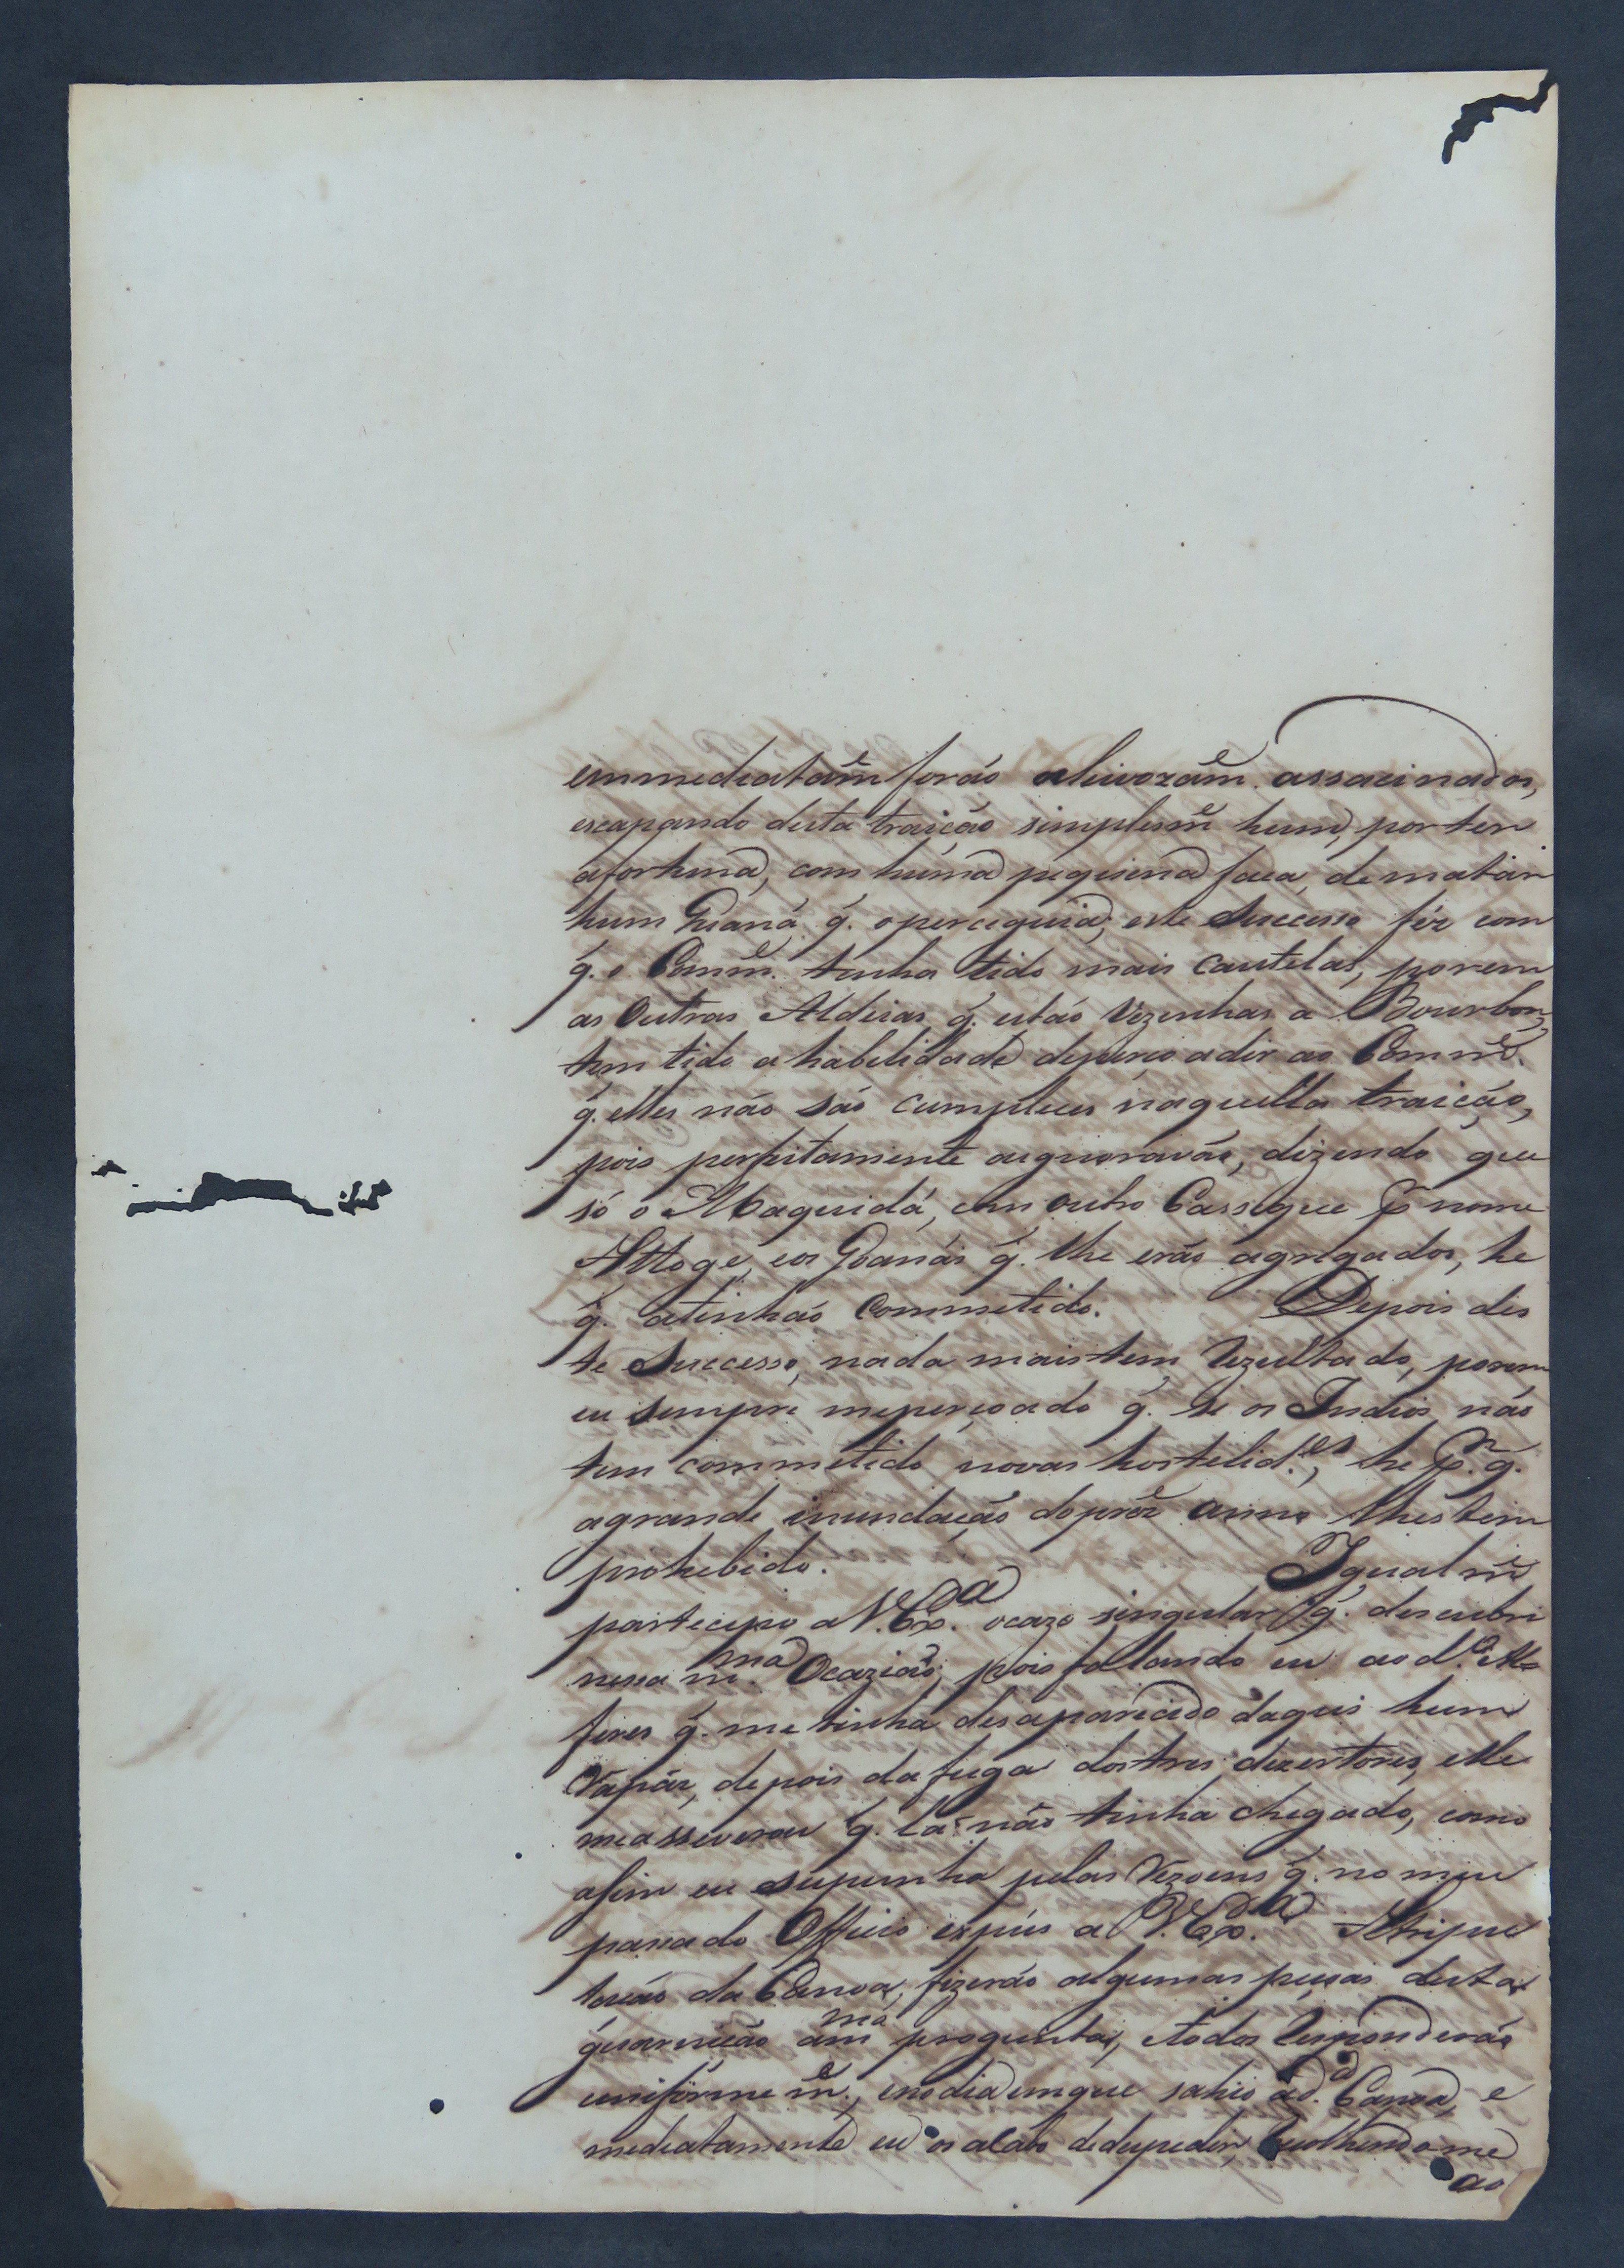 emmediatam.e forão aleivozam.e assacinados,
escapando desta traição simplesm.e hum, por ter
afortuna, com huma piquena faca, de matar
hum Guaná q̃. o perceguia; este Successo fêz com
q̃. o Comm.e tenha tido mais Cautelas, porem
as Outras Aldeias q̃. estão Vezinhas a Bourbon,
tem tido a habelidade depersoadir ao Comm.e
q̃. elles não são cumplices naquella traição,
pois perfeitamente aignoravão, dizendo que
só o Maquidá, com outro Cassique p nome
Attoge, eos Goanás q̃. lhe erão agregados, he
q̃. atinhão Commetido. Depois des
te Successo, nada mais tem Rezultado, porem
eu sempre mepersoado q̃. se os Indios não
tem commetido novas hostelid.es, he p.r q̃.
agrande inundação doprez.e anno thes tem
prohebido. Igualm.e
partecipo a V.Ex.a ocazo singular q̃. descubri
nessa m.ma Ocazião; pois fallando eu ao d.o Al=
feres q̃. me tinha desaparecido daqui hum
Rapáz, depois da fuga dos tres dezertores, elle
measseverou q̃. lá não tinha chegado, como
asim eu supunha pelas Rezoens q̃. no meu
passado Officio expús a V.Ex.a Atripu
lação da Canoa, fizerão algumas peçoas desta
guarnição am.ma progunta, etodos Responderão
uniformem.e, enodia emque sahio ad.a Canoa, e
mediatamente eu os acabo dedespedir, Recolhendome
ao